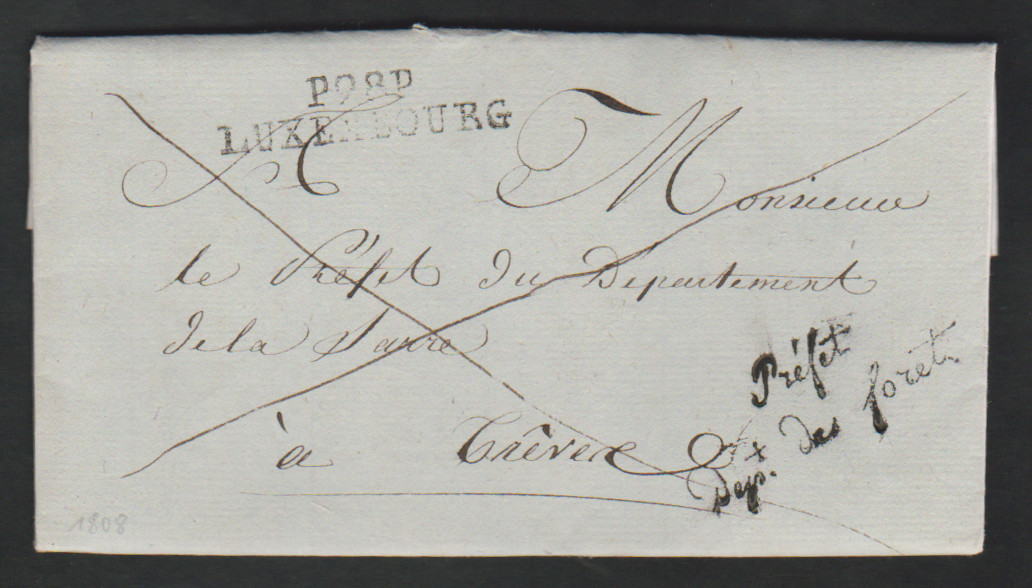 P98P
LUXEMBOURG
A Monsieur
le Préfet du Departement
de la Sarre
à Trèves
Préfet
Dep. des forêt
1808